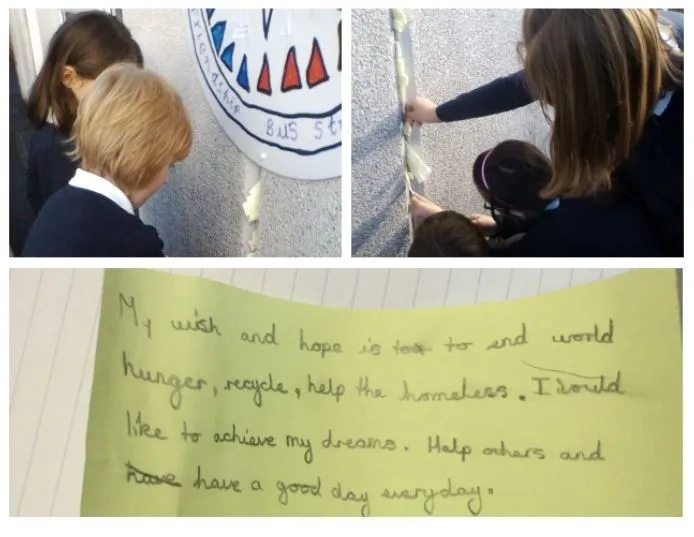 BUS St
My wish and hope is to to end world
hunger, recycle, help the homeless. I would
like to achieve my dreams. Help others and
have have a good day everyday.